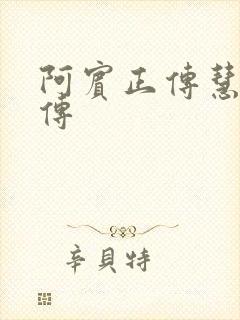 阿賓正傳慧
傳
辛貝特